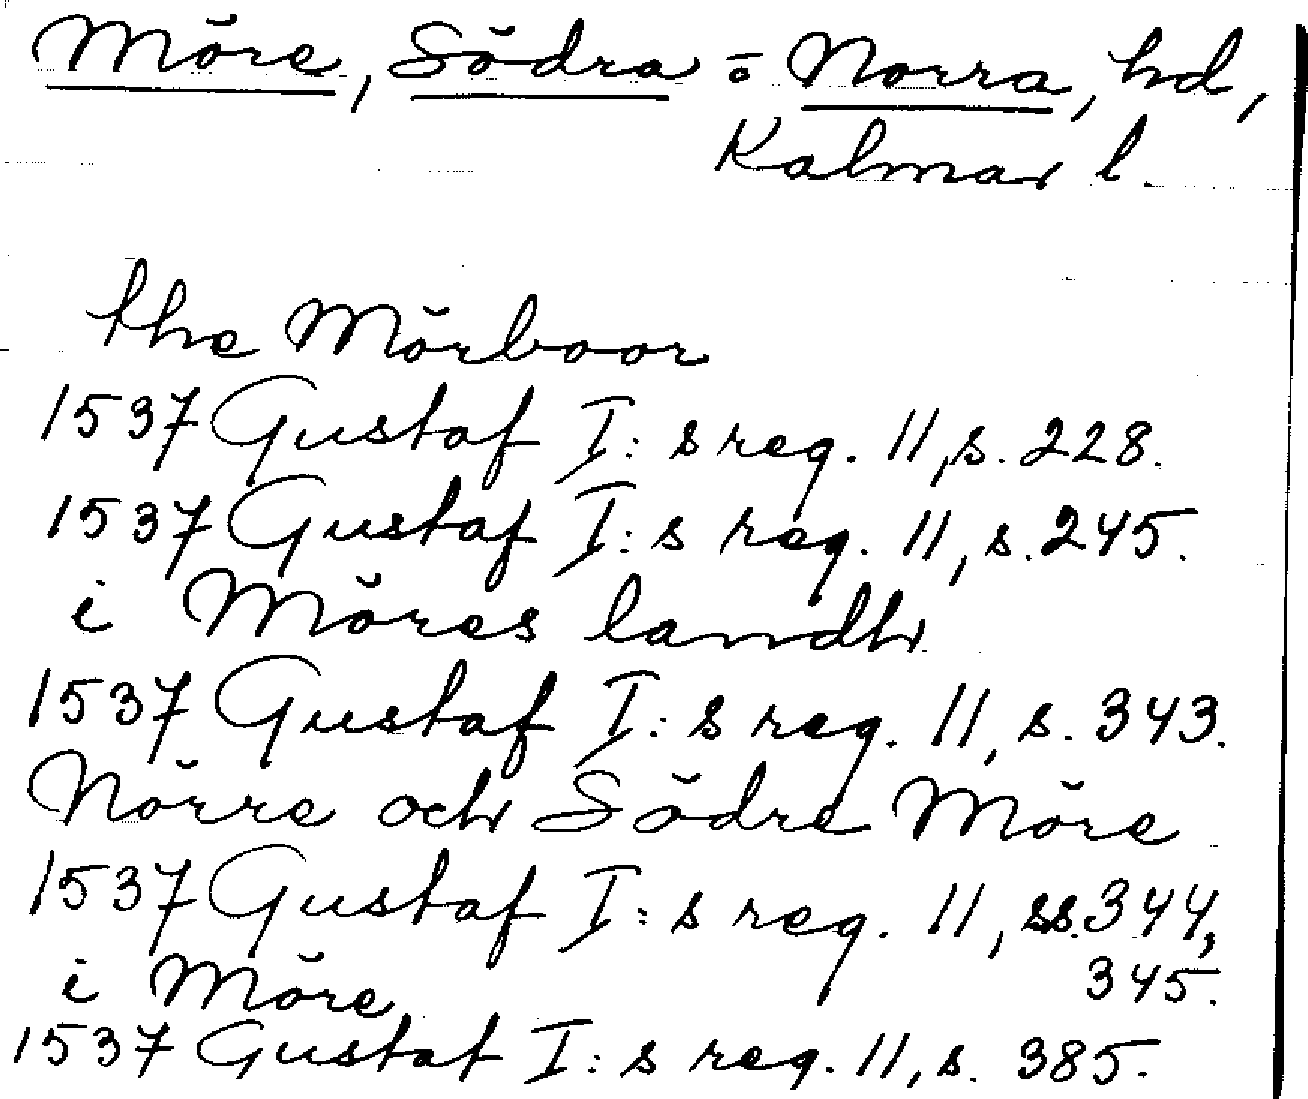 Möre, Södra o Norra, hd,
Kalmar l.
the Mörboor
1537 Gustaf I:s reg. 11, s. 228.
1537 Gustaf I:s reg. 11, s. 245.
i Möres landh
1537 Gustaf I:s reg. 11, s. 343.
Nörre och Södre Möre
1537 Gustaf I:s reg. 11, ss. 344,
345.
i Möre
1537 Gustaf I:s reg. 11, s. 385.